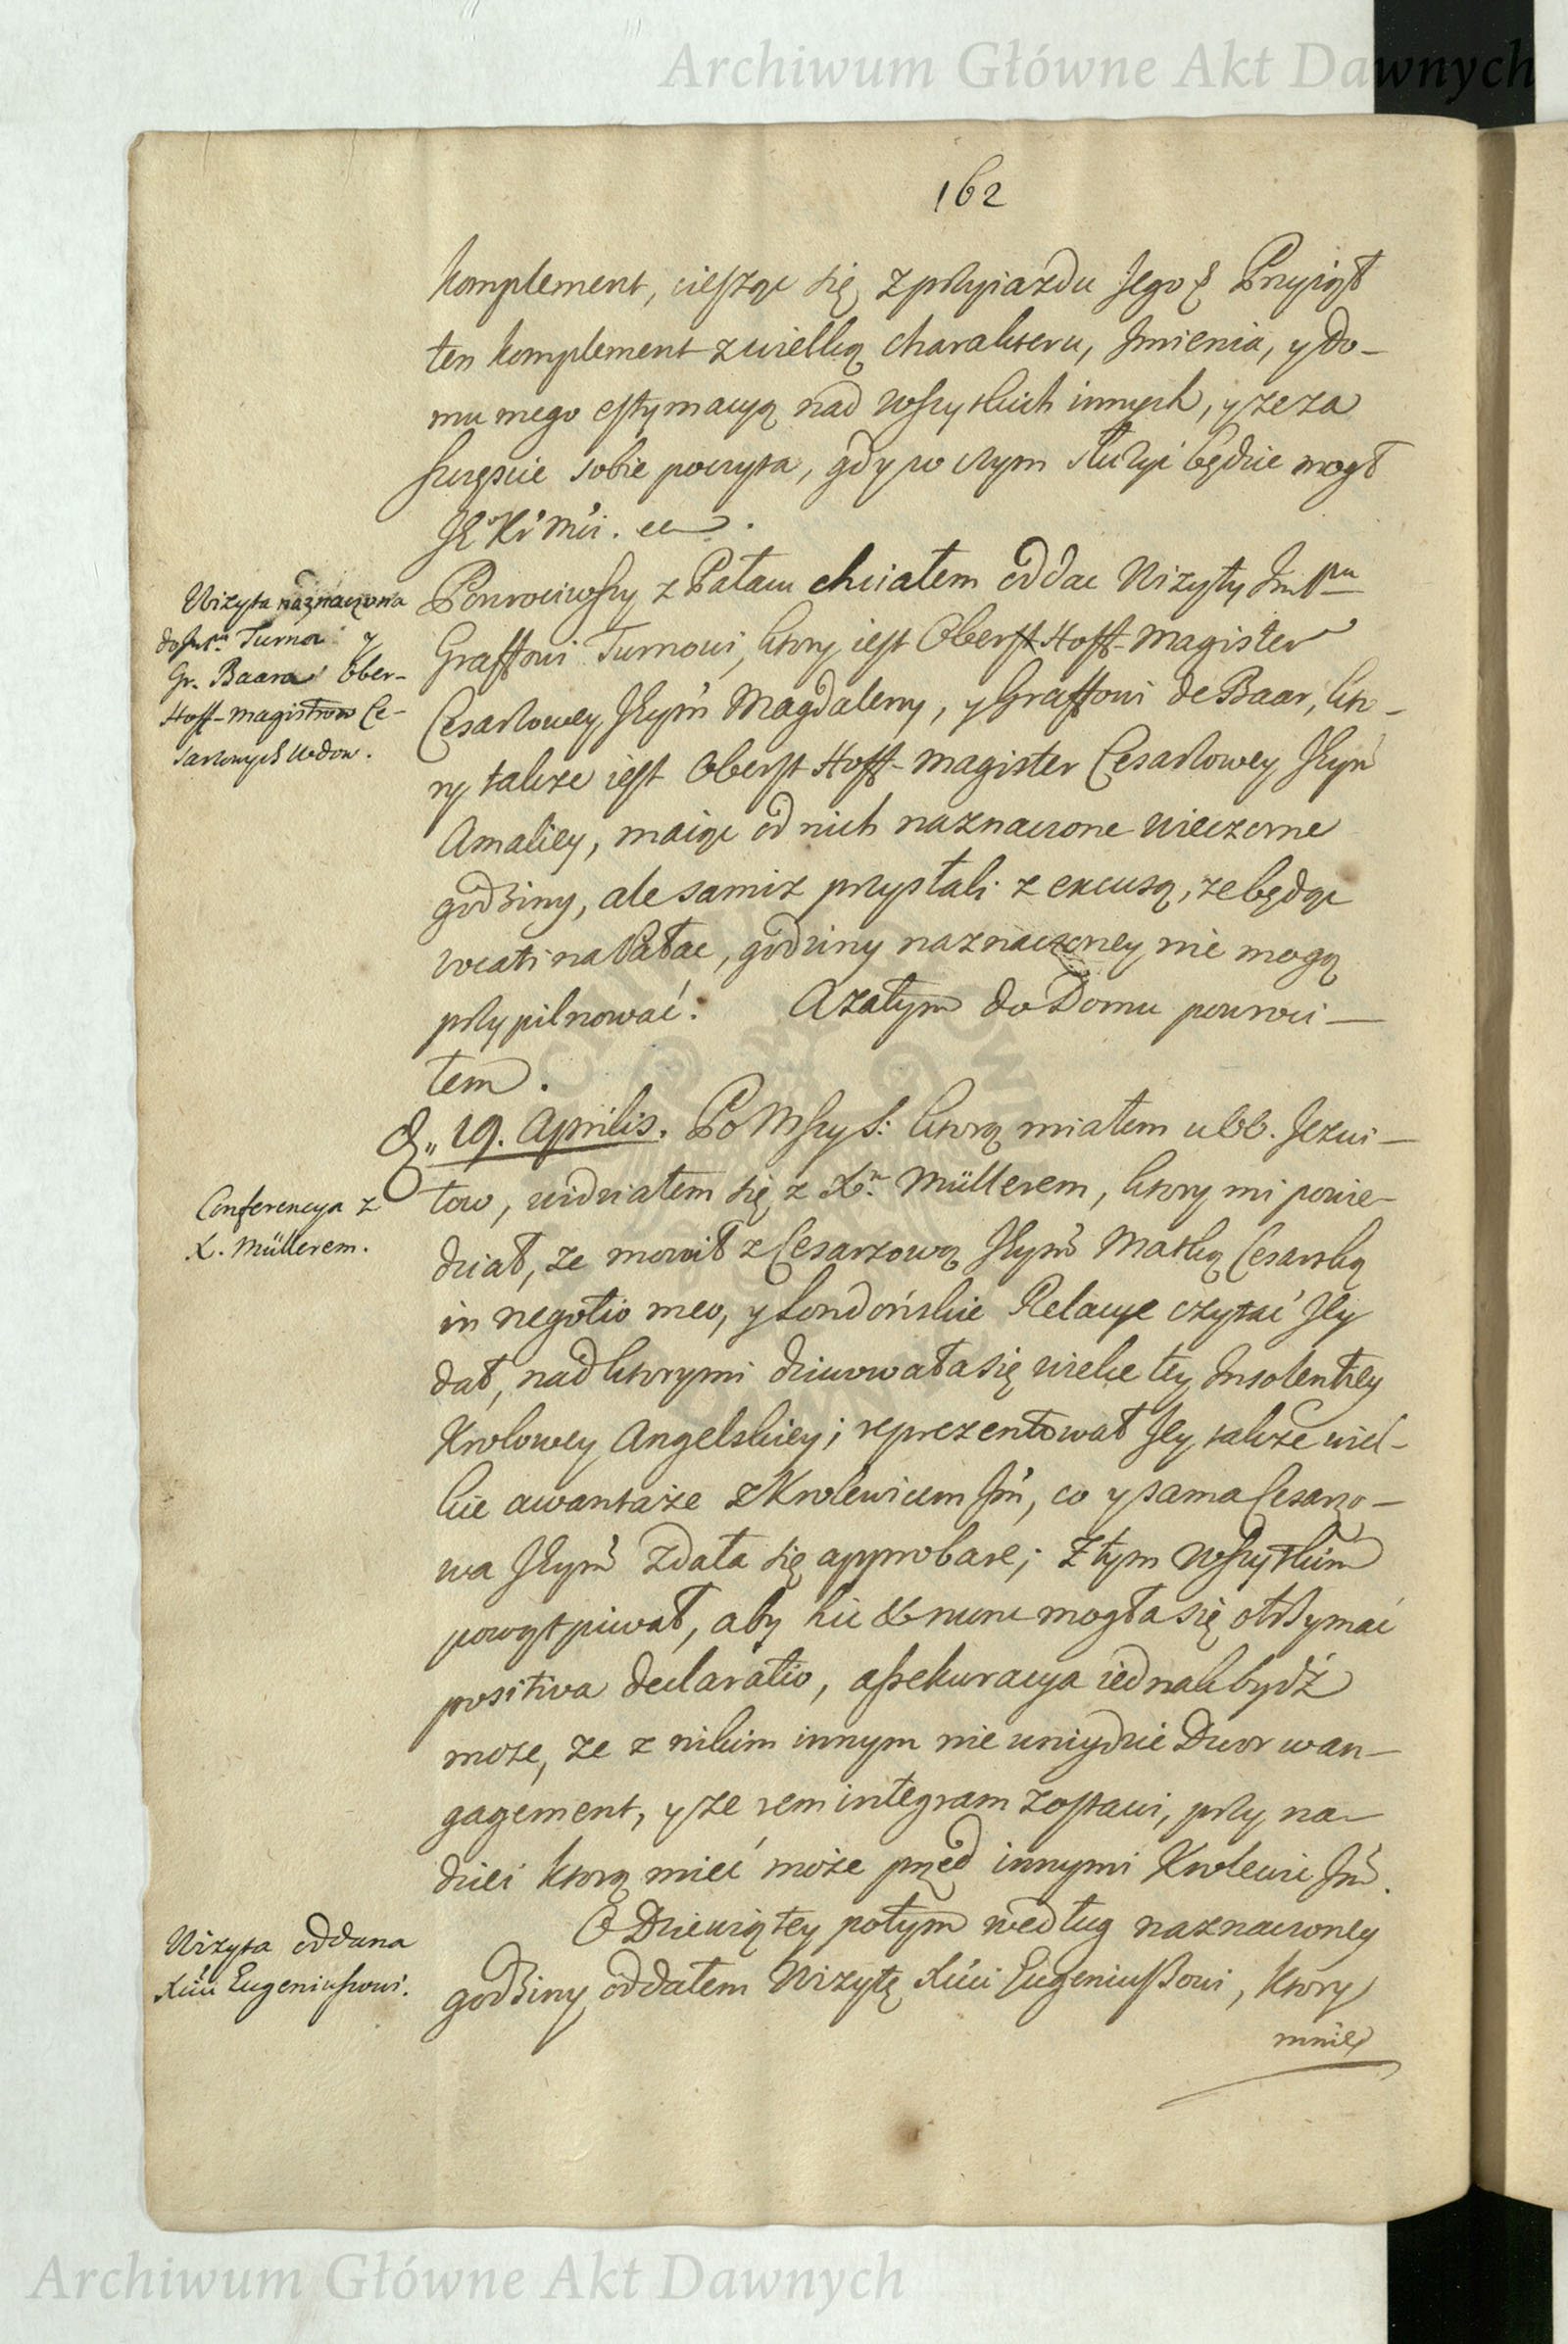 Archiwum Główne Akt Dawnych
162
komplement, ciesząc się z przyjazdu Jego & Przyiął
ten komplement z wielką charakteru, Imienia, y Do-
mu mego estymacyą nad wszytkich innych, y że za
szczęscie sobie poczyta, gdy w czym służyć będzie mogł
JKr Mci. etc.
Wizyta naznaczona
do Im Pna Turna y
Gr. Baara Ober-
Hoff-magistrow Ce-
sarzowych wdow.
Powrociwszy z Pałacu chciałem oddac Wizyty Im Pnu
Graffowi Turnowi, ktory iest Oberst Hoff-magister
Cesarzowey Jeym Magdaleny, y Graffowi de Baar, kto-
ry takze iest Oberst Hoff-magister Cesarzowey Jeym
Amaliey, maiąc od nich naznaczone wieczorne
godziny, ale samiz przysłali z excusą, ze będąc
vocati na Pałac, godziny naznaczoney nie mogą
przypilnować. A zatym do Domu powroci-
łem.
D. 19. Aprilis. Po Mszy S: ktorą miałem u bb. Jezui-
Conferencya z
X. Müllerem.
tow, widziałem się z Xn. Müllerem, ktory mi powie-
dział, ze mowił z Cesarzową Jeym Matką Cesarską
in negotio meo, y Londońskie Relacye czytać Jey
dał, nad ktorymi dziwowała się wielce tey Insolentiey
Krolowey Angelskiey; reprezentował Jey takze wiel-
kie awantaże z Krolewicem Jm, co y sama Cesarzo-
wa Jeym zdała się approbare; z tym wszytkim
powątpiwał, aby hic & nunc mogła się otrzymać
positiva declaratio, assekuracya iednak bydź
może, ze z nikim innym nie uniydzie Dwor w an-
gagement, y ze rem integram zostawi, przy na-
dziei ktorą mieć może przed innymi Krolewic Jm.
Wizyta oddana
Xciu Eugeniuszowi.
O Dziewiątey potym według naznaczoney
godziny oddałem Wizytę Xciu Eugeniuszowi, ktory
mnie
Archiwum Główne Akt Dawnych